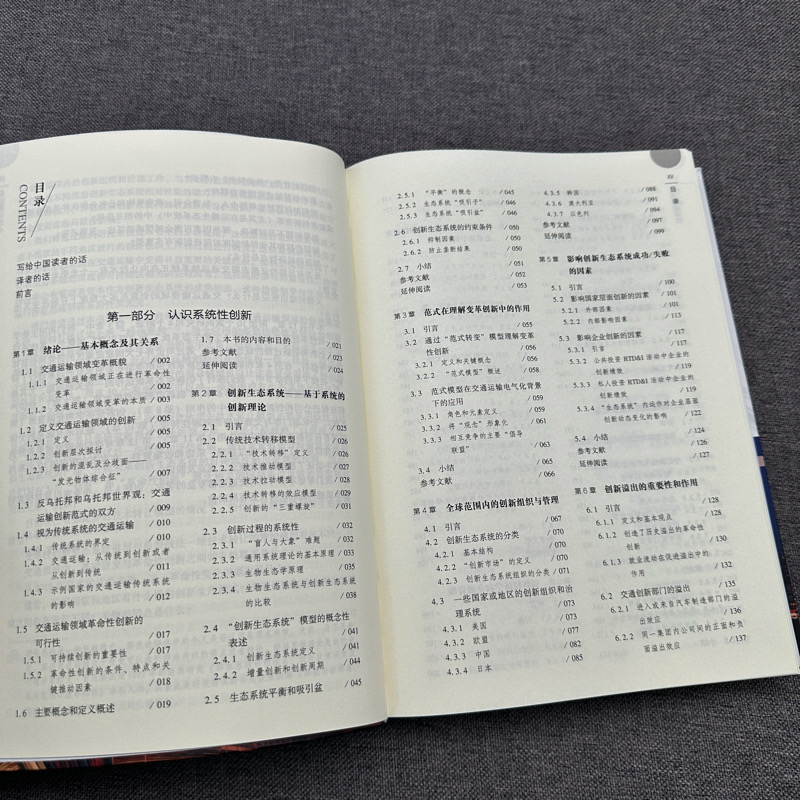 目录
CONTENTS
写给中国读者的话
译者的话
前言
第一部分 认识系统性创新
第1章 绪论——基本概念及其关系
1.1 交通运输领域变革概貌 / 002
1.1.1 交通运输领域正在进行革命性
变革 / 002
1.1.2 交通运输领域变革的本质 / 003
1.2 定义交通运输领域的创新 / 005
1.2.1 定义 / 005
1.2.2 创新层次探讨 / 005
1.2.3 创新的混乱及分歧面——
“发光物体综合征” / 007
1.3 反乌托邦和乌托邦世界观：交通
运输创新范式的双方 / 009
1.4 视为传统系统的交通运输 / 010
1.4.1 传统系统的界定 / 010
1.4.2 交通运输：从传统到创新或者
从创新到传统 / 011
1.4.3 示例国家的交通运输传统系统
的影响 / 012
1.5 交通运输领域革命性创新的
可行性 / 017
1.5.1 可持续创新的重要性 / 017
1.5.2 革命性创新的条件、特点和关
键推动因素 / 018
1.6 主要概念和定义概述 / 019
1.7 本书的内容和目的 / 021
参考文献 / 023
延伸阅读 / 024
第2章 创新生态系统——基于系统的
创新理论
2.1 引言 / 025
2.2 传统技术转移模型 / 026
2.2.1 “技术转移”定义 / 026
2.2.2 技术推动模型 / 027
2.2.3 技术拉动模型 / 027
2.2.4 技术转移的效应模型 / 029
2.2.5 创新的“三重螺旋” / 030
2.3 创新过程的系统性 / 032
2.3.1 “盲人与大象”难题 / 032
2.3.2 通用系统理论的基本原理 / 033
2.3.3 生物生态学原理 / 035
2.3.4 生物生态系统与创新生态系统
的比较 / 038
2.4 “创新生态系统”模型的概念性
表述 / 041
2.4.1 创新生态系统定义 / 041
2.4.2 增量创新和创新周期 / 044
2.5 生态系统平衡和吸引盆 / 045
XV
目录
2.5.1 “平衡”的概念 / 045
2.5.2 生态系统“吸引子” / 046
2.5.3 生态系统“吸引盆” / 046
2.6 创新生态系统的约束条件 / 050
2.6.1 抑制因素 / 050
2.6.2 防止垄断结果 / 050
2.7 小结 / 051
参考文献 / 052
延伸阅读 / 053
第3章 范式在理解变革创新中的作用
3.1 引言 / 055
3.2 通过“范式转变”模型理解变革
性创新 / 056
3.2.1 定义和关键概念 / 056
3.2.2 “范式模型”概述 / 058
3.3 范式模型在交通运输电气化背景
下的应用 / 059
3.3.1 角色和元定义 / 059
3.3.2 将“观念”形象化 / 061
3.3.3 相互竞争的主要“倡导
联盟” / 061
3.4 小结 / 065
参考文献 / 066
第4章 全球范围内的创新组织与管理
4.1 引言 / 067
4.2 创新生态系统的分类 / 070
4.2.1 基本结构 / 070
4.2.2 “创新市场”的定义 / 070
4.2.3 创新生态系统组织的分类 / 071
4.3 一些国家或地区的创新组织和治
理系统 / 073
4.3.1 美国 / 073
4.3.2 欧盟 / 077
4.3.3 中国 / 082
4.3.4 日本 / 085
4.3.5 韩国 / 088
4.3.6 澳大利亚 / 091
4.3.7 以色列 / 094
参考文献 / 097
延伸阅读 / 099
第5章 影响创新生态系统成功/失败
的因素
5.1 引言 / 100
5.2 影响国家层面创新的因素 / 101
5.2.1 外部因素 / 101
5.2.2 内部影响因素 / 113
5.3 影响企业创新的因素 / 117
5.3.1 引言 / 117
5.3.2 公共投资RTD&I活动中企业的
创新绩效 / 117
5.3.3 私人投资RTD&I活动中企业的
创新绩效 / 119
5.3.4 “生态系统”内运作对企业层面
创新动态变化的影响 / 122
5.4 小结 / 124
参考文献 / 126
延伸阅读 / 127
第6章 创新溢出的重要性和作用
6.1 引言 / 128
6.1.1 定义和基本观点 / 128
6.1.2 创造了历史溢出的革命性
创新 / 130
6.1.3 就业流动在促进溢出中的
作用 / 132
6.2 交通创新部门的溢出 / 135
6.2.1 进入或来自汽车制造部门的溢
出效应 / 136
6.2.2 同一集团内公司间的正面和负
面溢出效应 / 137